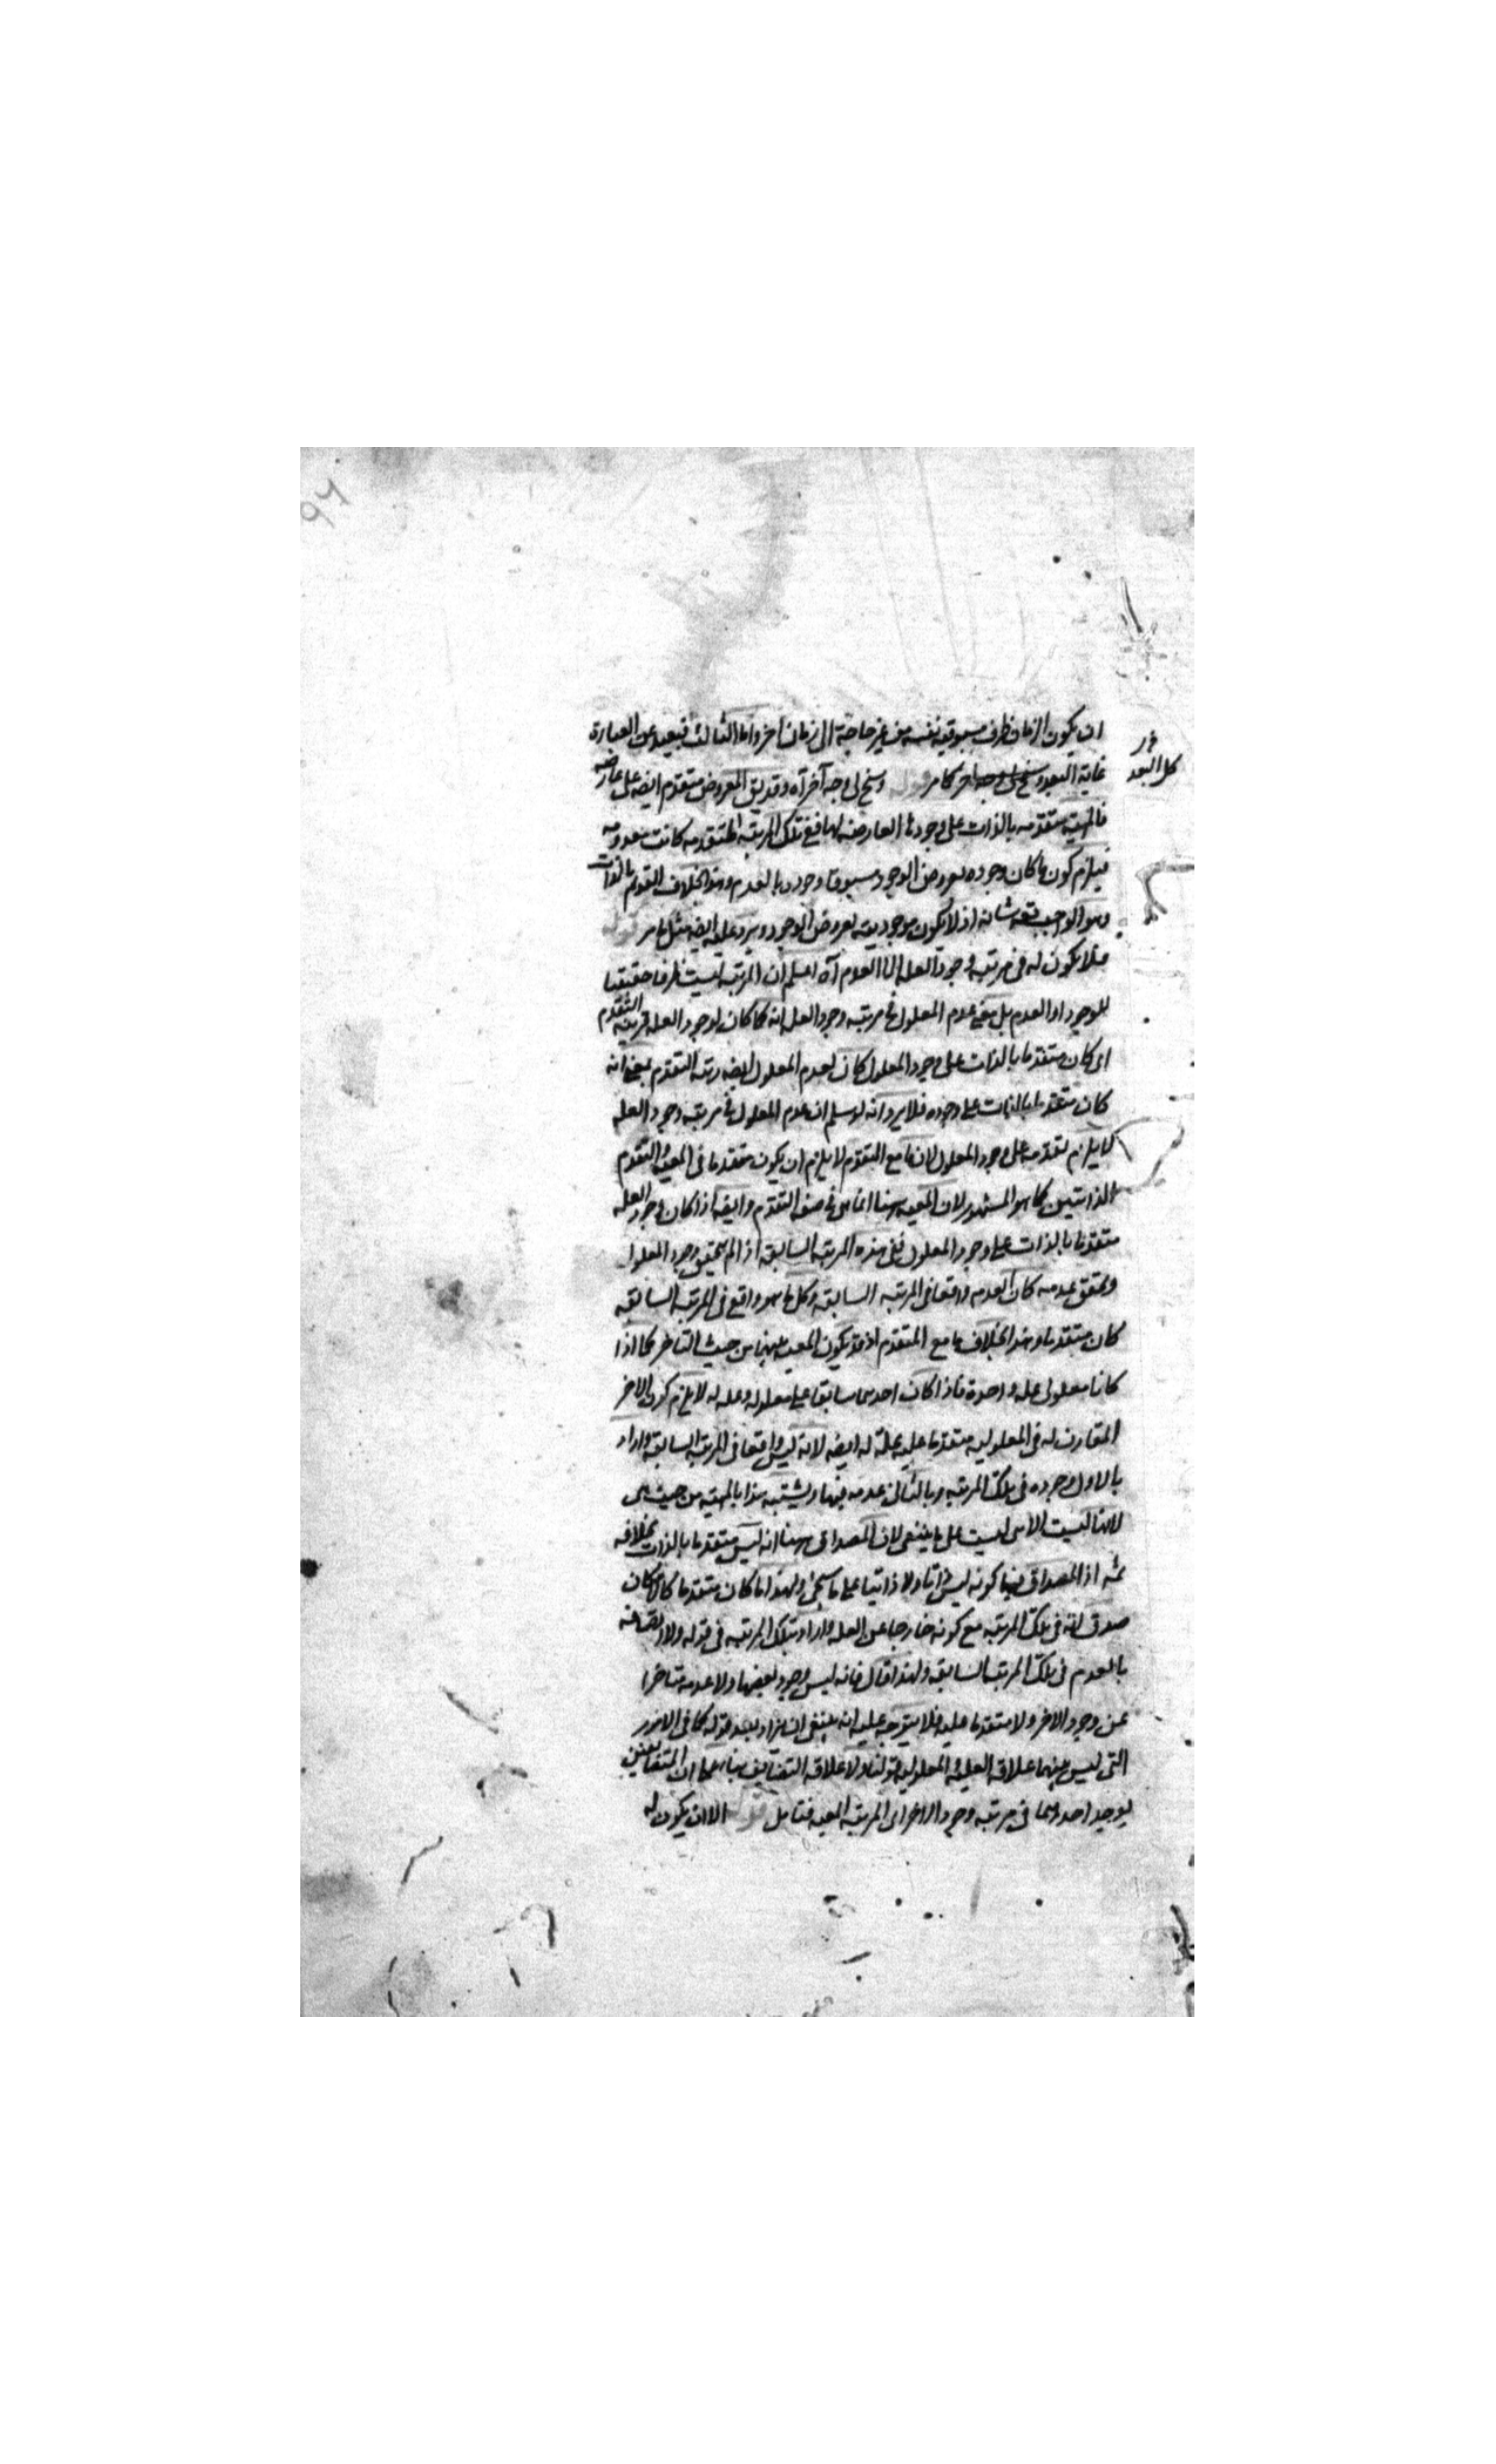 ان يكون الزمان ظرف مسبوقية نفسه من غير حاجة الى زمان اخر واما الثالث فبعيد عن العبارة
كل البعد
غاية البعد وسنح لى وجه اخر كما مر قوله وسنح لى وجه آخر آه وقد يق المعروض متقدم ايضه على عارضه
فالمهية متقدمه بالذات على وجودها العارض لها ففى تلك المرتبه المتقدمه كانت معدومه
فيلزم كون ما كان وجوده بعروض الوجود مسبوقا وجوده بالعدم وهذا بخلاف القديم بالذات
وهو الواجب تعه شانه اذ لا يكون موجوديته بعروض الوجود ويرد عليه ايضه مثل ما مر قوله
فلا يكون له فى مرتبه وجود العله الا العدم آه اعلم ان المرتبه ليست ظرفا حقيقيا
للوجود او العدم بل معنى عدم المعلول فى مرتبه وجود العله انه كما كان لوجود العله مرتبه التقدم
اى كان متقدما بالذات على وجود المعلول كان لعدم المعلول ايضه رتبه التقدم بمعنى انه
كان متقدما بالذات على وجوده فلا يرد انه لو سلم ان عدم المعلول فى مرتبه وجود العله
لا يلزم تقدمه على وجود المعلول لان ما مع المتقدم لا يلزم ان يكون متقدما فى المعيه والتقدم
الذاتيين كما هو المشهور لان المعيه ههنا انما هى فى صفه التقدم وايضه اذا كان وجود العله
متقدما بالذات على وجود المعلول ففى هذه المرتبه السابقه اذا لم يتحقق وجود المعلول
وتحقق عدمه كان العدم واقعا فى المرتبه السابقه وكل ما هو واقع فى المرتبه السابقه
كان متقدما وهذا بخلاف ما مع المتقدم اذ قد يكون المعيه بينهما من حيث التاخر كما اذا
كانا معلولى عله واحدة فاذا كان احدهما سابقا على معلوله وعله له لا يلزم كون الاخر
المقارن له فى المعلوليه متقدما عليه عله له ايضه لانه ليس واقعا فى المرتبه السابقه واراد
بالاول وجوده فى تلك المرتبه وبالثانى عدمه فيها وتشبيه هذا بالمهيه من حيث هى
لانها ليست الا هى ليست على ما ينبغى لان المصداق ههنا انه ليس متقدما بالذات بخلافه
ثمه اذ المصداق فيها كونه ليس ذاتا ولا ذاتيا على ما سيجئ ولهذا ما كان متقدما كالامكان
صدق انه فى تلك المرتبه مع كونه خارجا عن العله واراد بتلك المرتبه فى قوله ولا اتصافه
بالعدم فى تلك المرتبه السابقه ولهذا قال فانه ليس وجود بعضها ولا عدمه متاخرا
عن وجود الاخر ولا متقدما عليه فلا يتوجه عليه انه ينبغى ان يزاد بعد قوله كما فى الامور
التى ليس بينهما علاقه العليه والمعلوليه قولنا ولا علاقه التضايف بناء على ان المتضايفين
يوجد احدهما فى مرتبه وجود الاخر اى المرتبه المعيه فتامل قوله الا ان يكون له